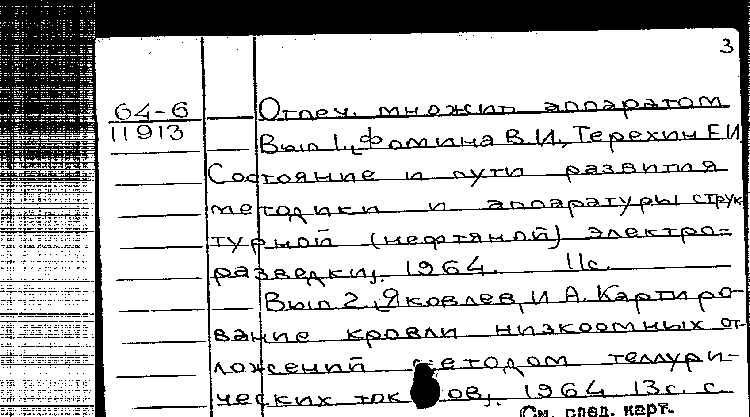 3
64-6 Отпеч. множит. аппаратом
11913 Вып 1, Фомина В.И., Терехин Е И
Состояние и пути развития
методики и аппаратуры струк
турной (нефтяной) электро=
разведки, 1964. 11с.
Вып 2. Яковлев, И А. Картиро-
вание кровли низкоомных от
ложений методом теллури-
ческих ток ов, 1964 13с. с
См. след. карт.